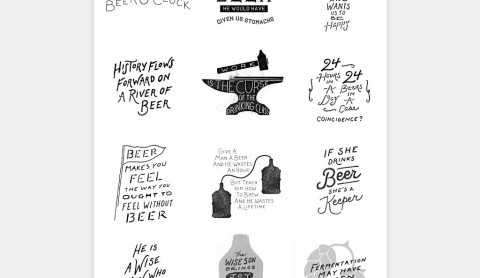 BEER O'CLOCK
BEER
HE WOULD HAVE
GIVEN US STOMACHS
AND
WANTS
US TO
BE
Happy
HISTORY FLOWS
FORWARD ON
A RIVER OF
BEER
WORK
IS THE CURSE
OF THE
DRINKING CLASS
24
HOURS 24
IN
A BEERS
DAY IN
A
CASE
COINCIDENCE?
BEER
MAKES YOU
FEEL
THE WAY YOU
OUGHT TO
FEEL WITHOUT
BEER
GIVE A
MAN A BEER
AND HE WASTES
AN HOUR
BUT TEACH
HIM HOW
TO BREW
AND HE WASTES
A LIFETIME
IF SHE
DRINKS
Beer
SHE'S A
Keeper
HE IS
A WISE
MAN WHO
The
WISE SON
BRINGS
JOY
FERMENTATION
MAY HAVE
BEEN